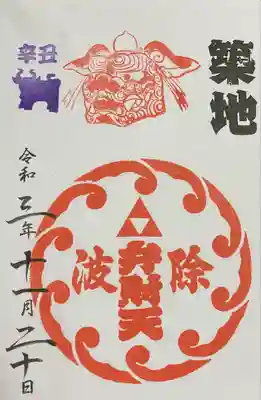 築地
辛丑
波除
弁財天
令和三年十一月二十日